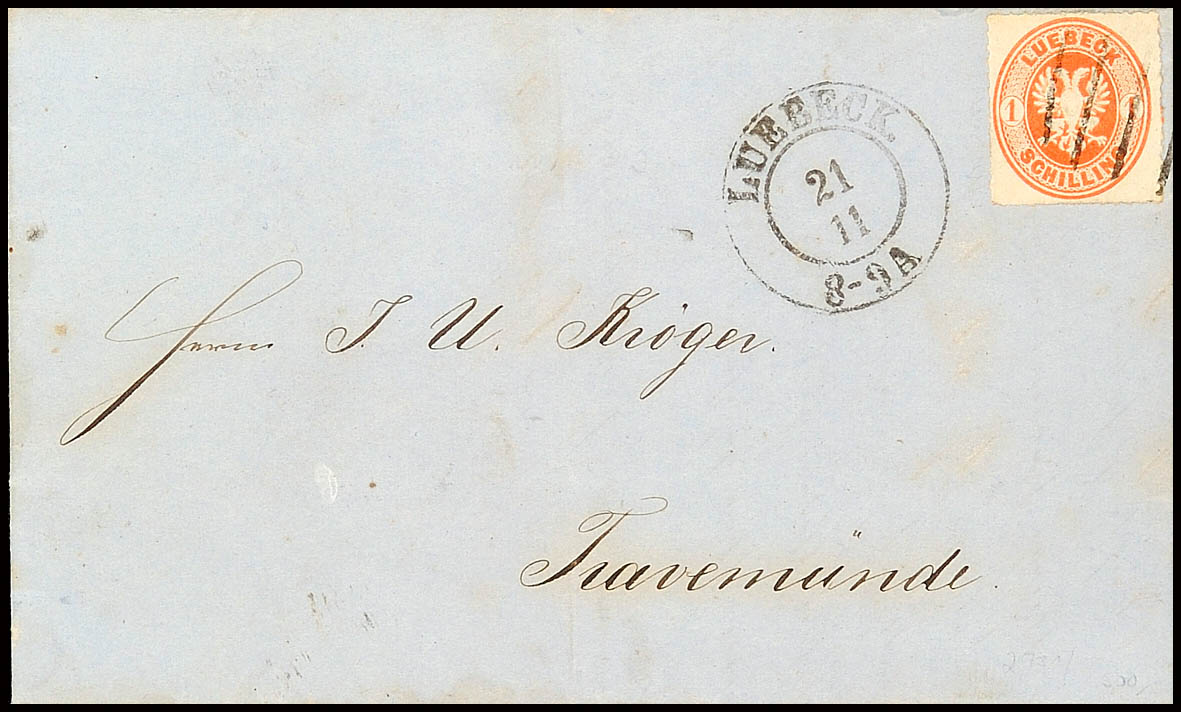 LUEBECK
1
SCHILLING
LUEBECK.
21
11
8-9A
Herrn J. U. Kröger.
Travemünde.